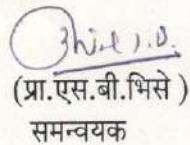 (प्रा.एस.बी.भिसे)
समन्वयक